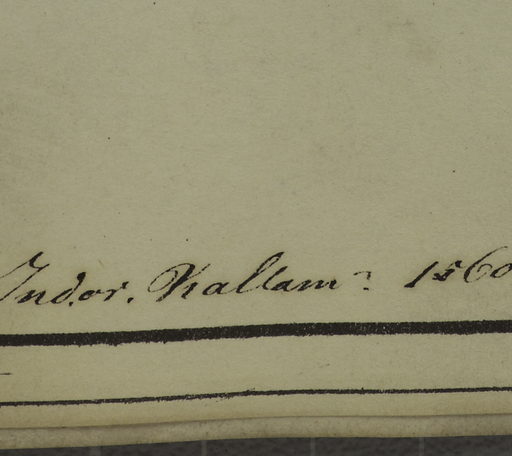 Indor. Kallam? 1560